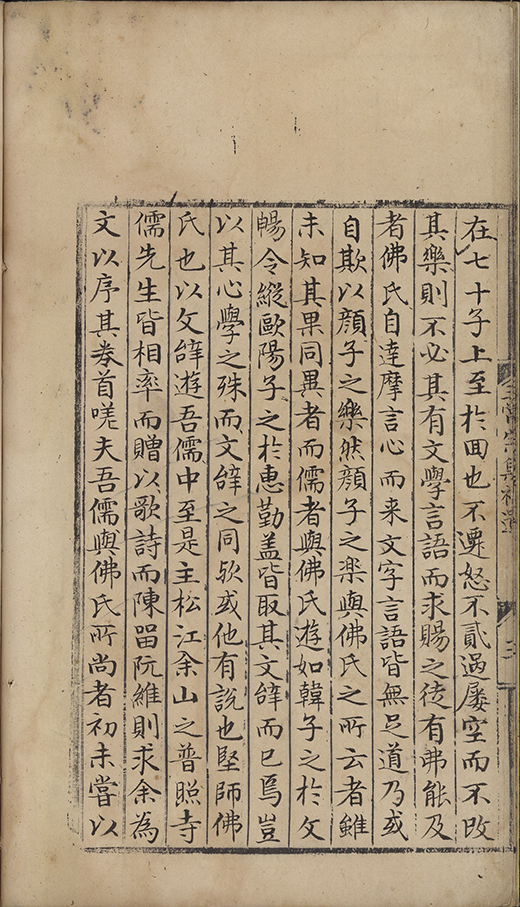 在七十子上至於回也不遷怒不貳過屢空而不改
其樂則不必其有文學言語而求賜之徒有弗能及
者佛氏自達摩言心而来文字言語皆無足道乃或
自欺以顔子之樂然顔子之楽與佛氏之所云者雖
未知其果同異者而儒者與佛氏遊如韓子之於文
暢令縱歐陽子之於惠勤盖皆取其文辝而已焉豈
以其心學之殊而文辝之同欤或他有說也堅師佛
氏也以文辝遊吾儒中至是主松江佘山之普照寺
儒先生皆相率而贈以歌詩而陳畱阮維則求余為
文以序其券首嗟夫吾儒與佛氏所尚者初未嘗以